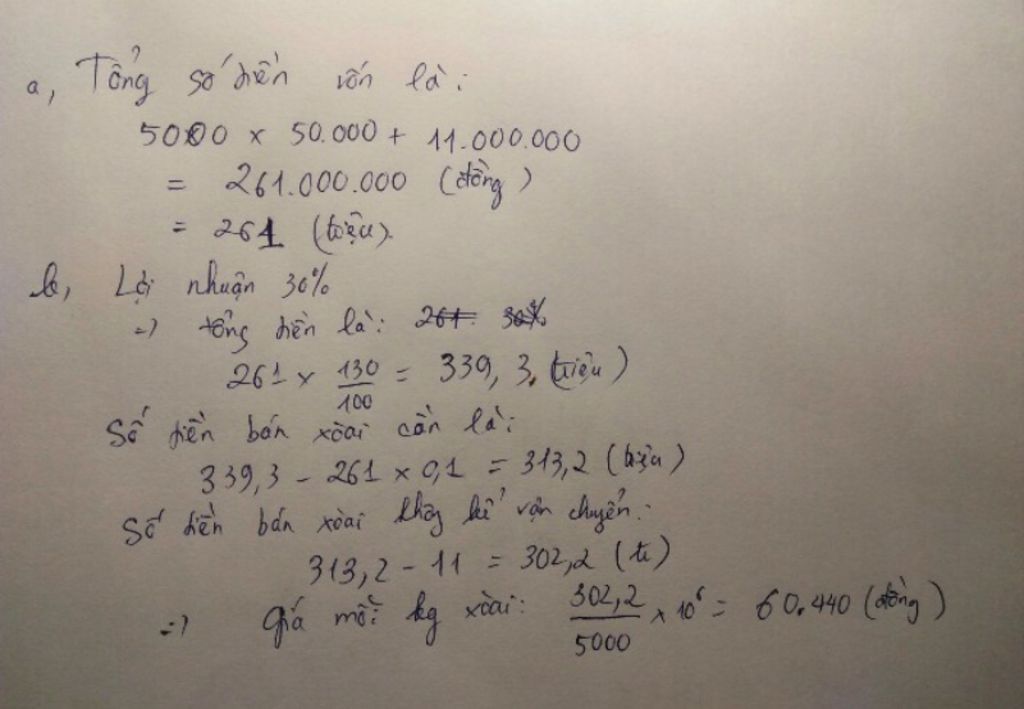 a, Tổng số tiền vốn là:
5000 x 50.000 + 11.000.000
= 261.000.000 (đồng)
= 261 (triệu).
b, Lợi nhuận 30%
=> tổng tiền là: 261 30%
261 x 130/100 = 339,3 (triệu)
Số tiền bán xoài cần là:
339,3 - 261 x 0,1 = 313,2 (triệu)
Số tiền bán xoài không kể vận chuyển:
313,2 - 11 = 302,2 (tr)
=> Giá mỗi kg xoài: 302,2/5000 x 10⁶ = 60.440 (đồng)